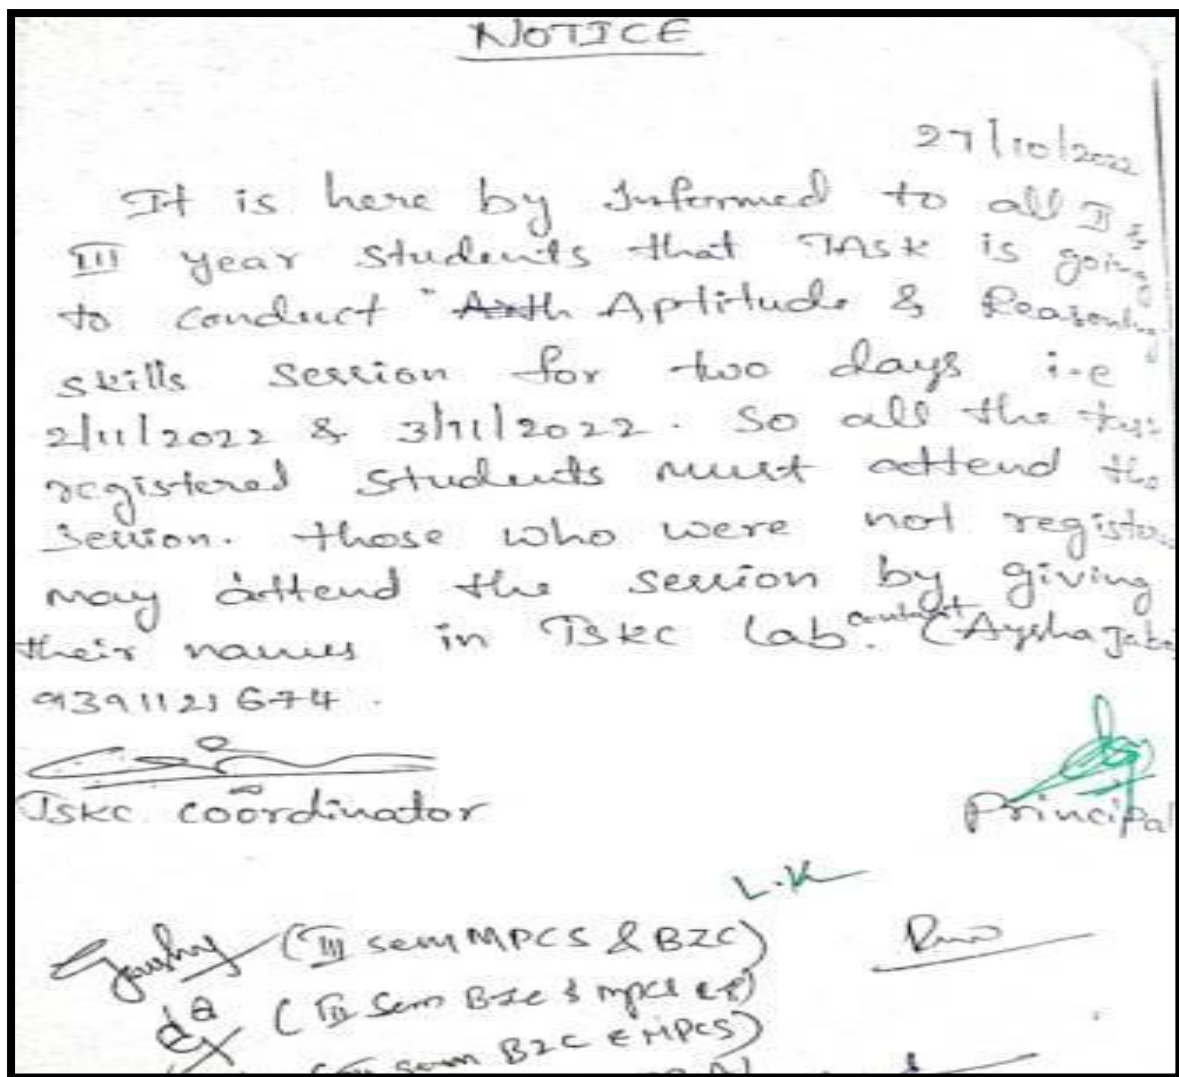 NOTICE
27/10/2022
It is here by Informed to all II &
III year students that TASK is going
to conduct " Aptitude & Reasoning
skills session for two days i.e
2/11/2022 & 3/11/2022. So all the
registered students must attend the
session. those who were not register
may attend the session by giving
their names in TSKC Lab. contact (Aysha
9391121674.
TSKC coordinator
Principal
L.K
(III sem MPCS & BZC)
Sem BZC & mpcs
sem BZC & MPCS)